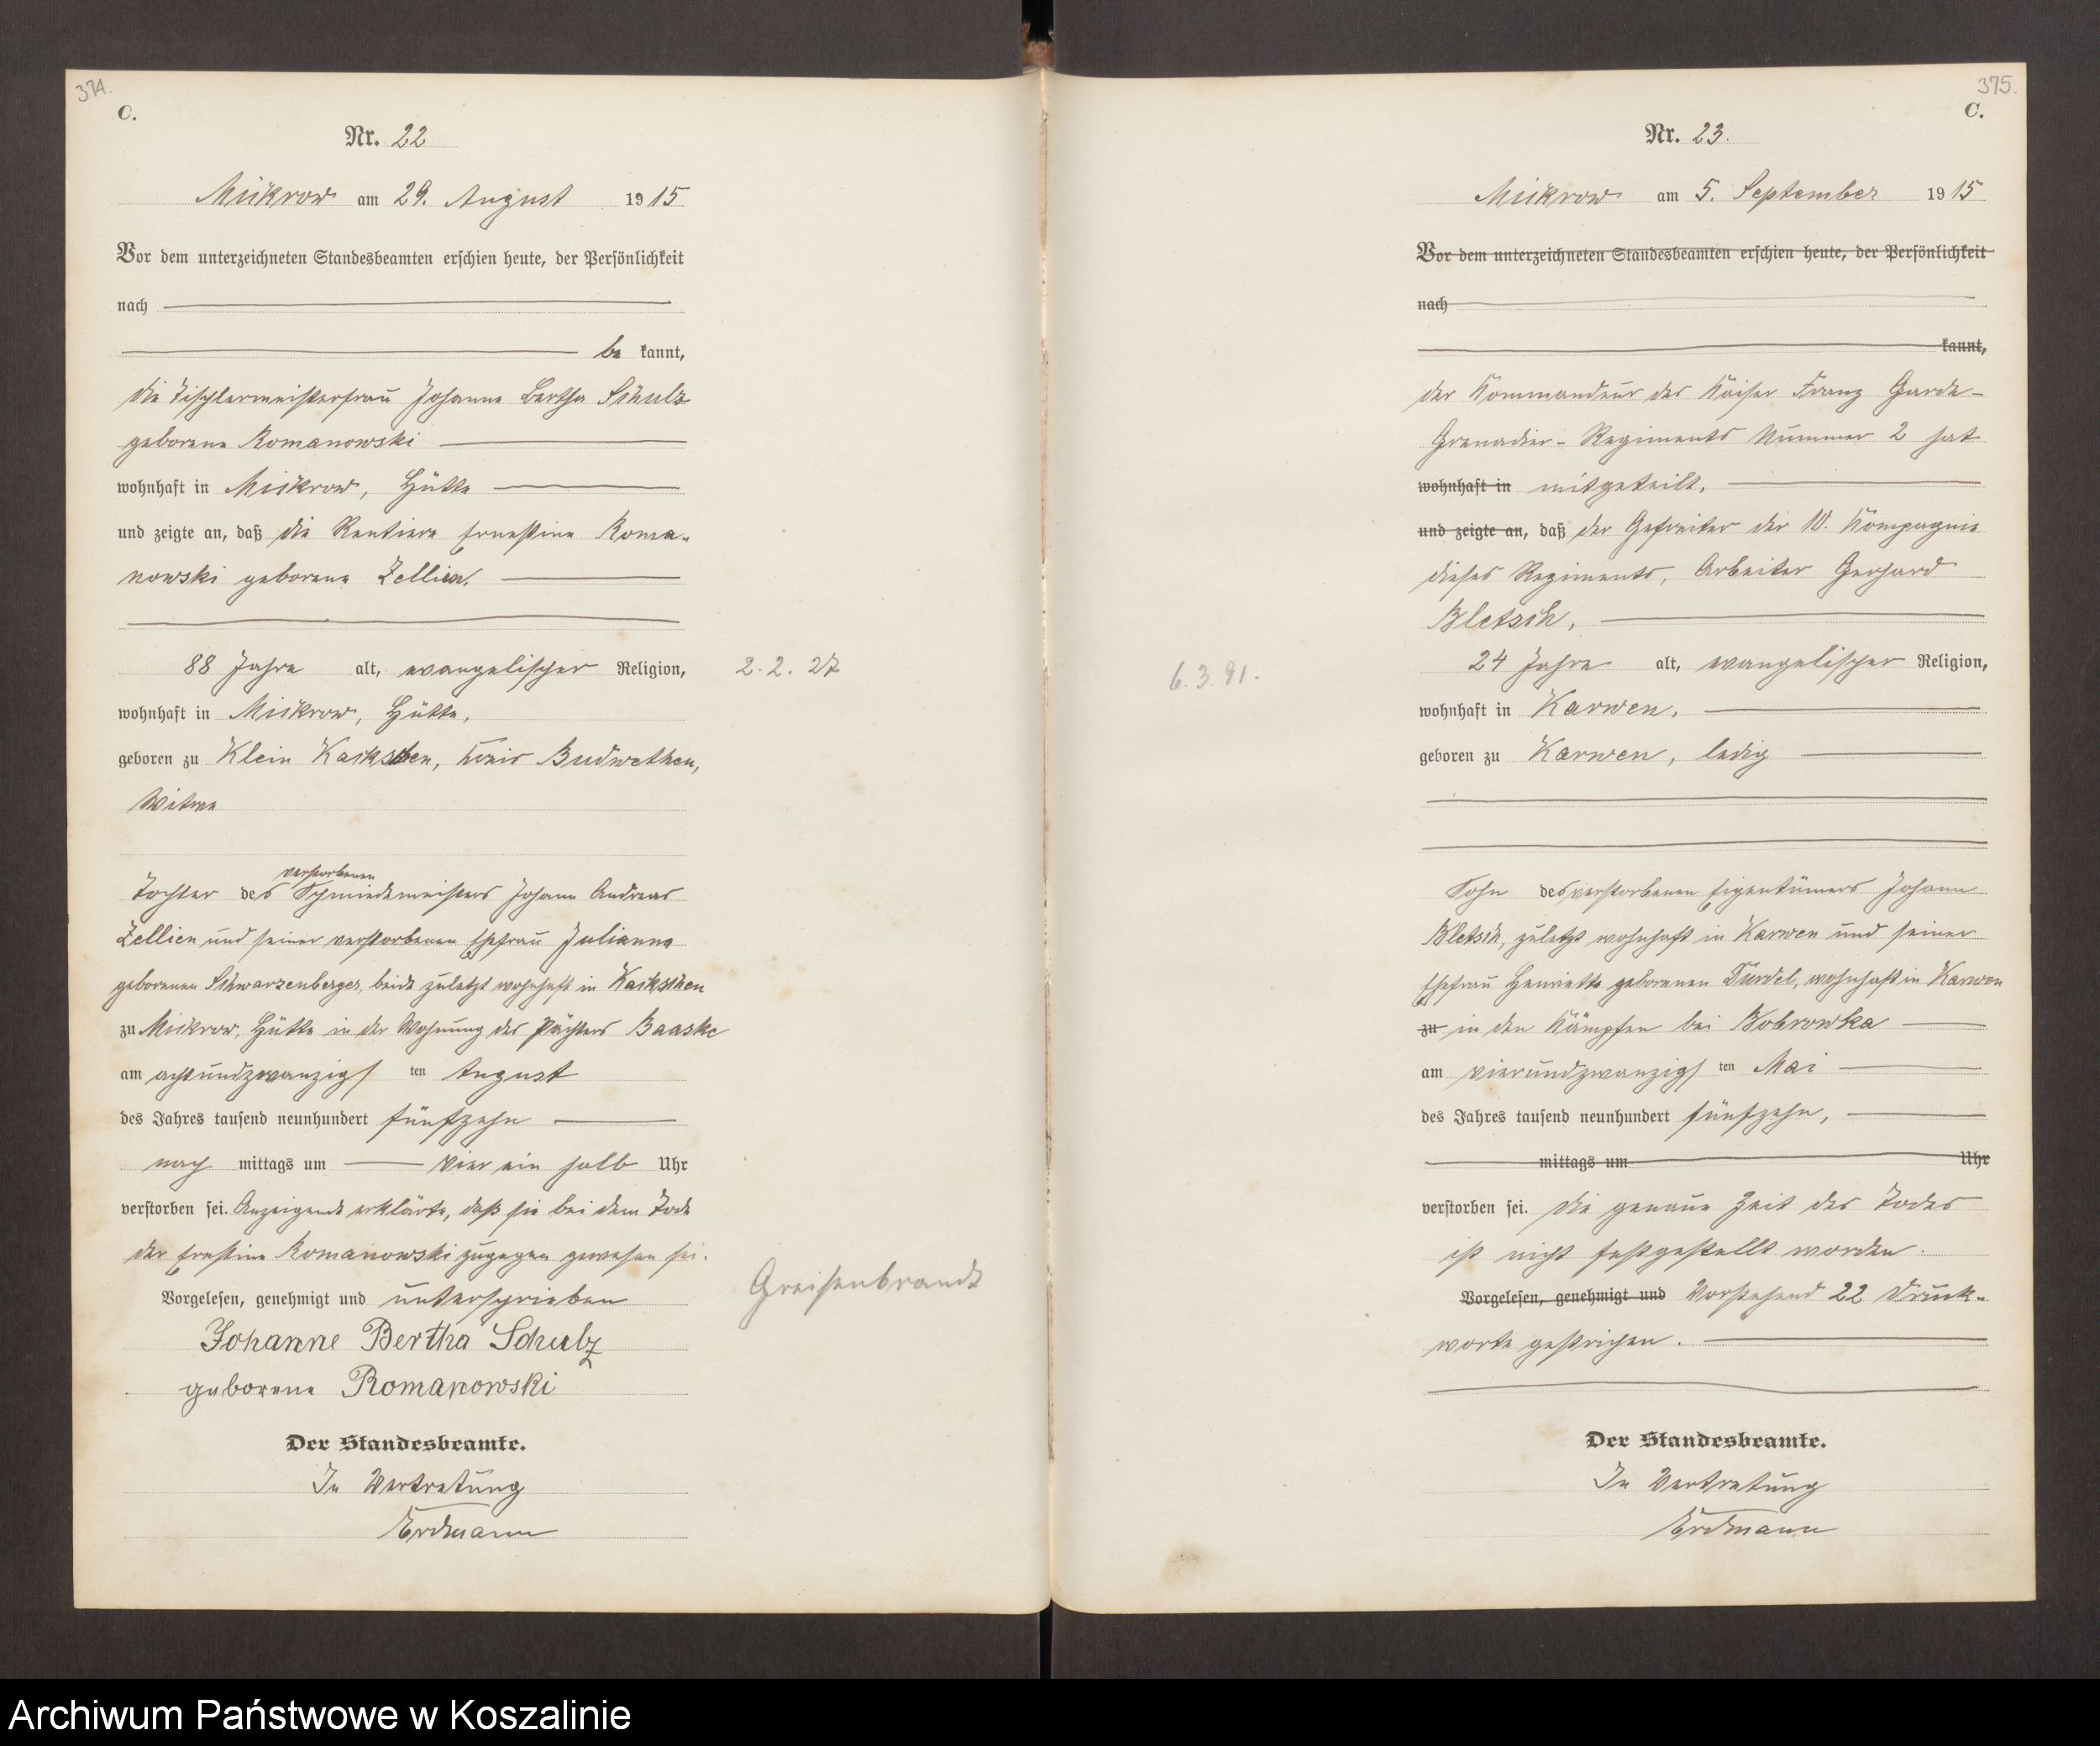 374.
C.
Nr. 22
Mickrow am 29. August 1915
Vor dem unterzeichneten Standesbeamten erschien heute, der Persönlichkeit
nach
be kannt,
die Tischlermeisterfrau Johanne Bertha Schulz
geborene Romanowski
wohnhaft in Mickrow, Hütte
und zeigte an, daß die Rentiere Ernestine Roma-
nowski geborene Zellien,
88 Jahre alt, evangelischer Religion,
2. 2. 27
wohnhaft in Mickrow, Hütte,
geboren zu Klein Kackschen, Kreis Budwethen,
Witwe
verstorbenen
Tochter des Schmiedemeisters Johann Andreas
Zellien und seiner verstorbenen Ehefrau Julianne
geborenen Schwarzenberger, beide zuletzt wohnhaft in Kackschen
zu Mickrow, Hütte in der Wohnung des Pächters Baaske
am achtundzwanzigs ten August
des Jahres tausend neunhundert fünfzehn
nach mittags um vier ein halb Uhr
verstorben sei. Anzeigende erklärte, daß sie bei dem Tode
der Ernestine Romanowski zugegen gewesen sei.
Vorgelesen, genehmigt und unterschrieben
Greisenbrand
Johanne Bertha Schulz
geborene Romanowski
Der Standesbeamte.
In Vertretung
Erdmann
375.
C.
Nr. 23.
Mickrow am 5. September 1915
Vor dem unterzeichneten Standesbeamten erschien heute, der Persönlichkeit
nach
kannt,
der Kommandeur des Kaiser Franz Garde-
Grenadier-Regiments Nummer 2 hat
wohnhaft in mitgeteilt,
und zeigte an, daß der Gefreiter der 10. Kompagnie
dieses Regiments, Arbeiter Gerhard
Bletsch,
24 Jahre alt, evangelischer Religion,
6. 3. 91.
wohnhaft in Karwen,
geboren zu Karwen, ledig
Sohn des verstorbenen Eigentümers Johann
Bletsch, zuletzt wohnhaft in Karwen und seiner
Ehefrau Henriette geborenen Durdel, wohnhaft in Karwen
zu in den Kämpfen bei Bobrowka
am vierundzwanzigs ten Mai
des Jahres tausend neunhundert fünfzehn,
mittags um Uhr
verstorben sei. Die genaue Zeit des Todes
ist nicht festgestellt worden.
Vorgelesen, genehmigt und Vorstehend 22 Druck-
worte gestrichen.
Der Standesbeamte.
In Vertretung
Erdmann
Archiwum Państwowe w Koszalinie